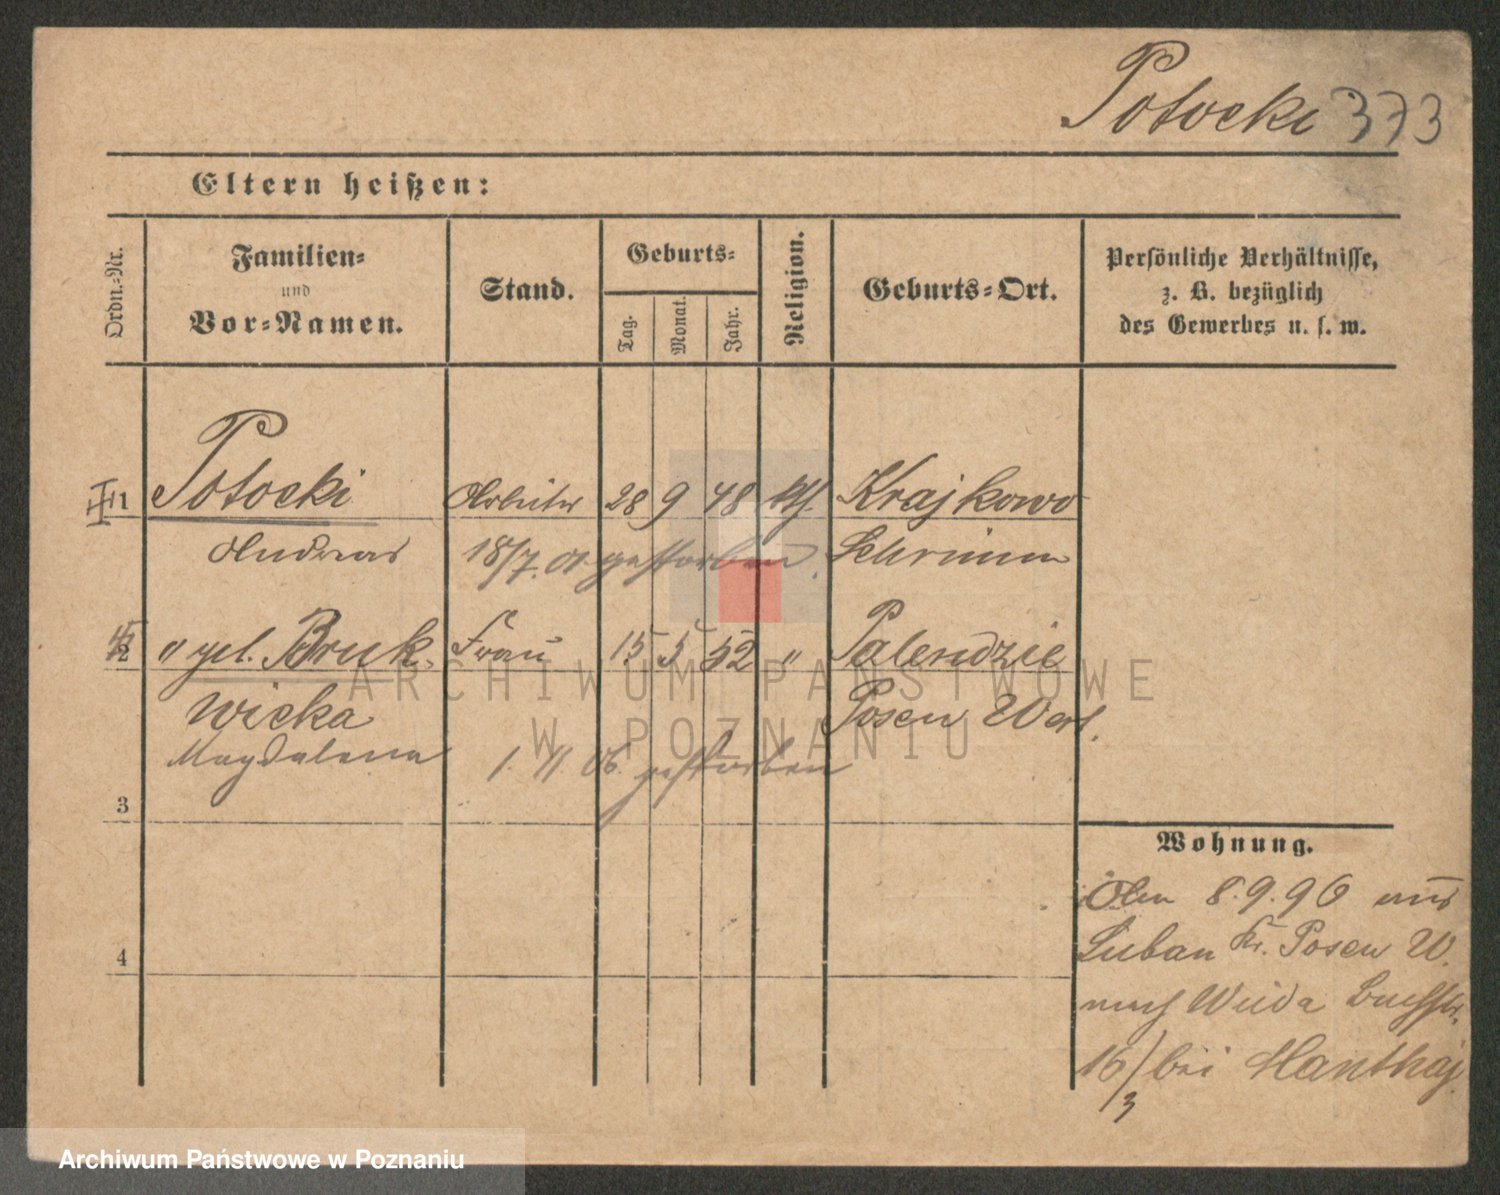 Potocki 373
Eltern heißen:
Ordn.-Nr.
Familien-
und
Vor-Namen.
Stand.
Geburts-
Tag.
Monat.
Jahr.
Religion.
Geburts-Ort.
Persönliche Verhältnisse,
z. B. bezüglich
des Gewerbes u. s. w.
1 Potocki Arbeiter 28 9 48 kth. Krajkowo
Andreas 18/7. 01 gestorben. Schrimm
2 " geb. Bruk- Frau 15 5 52 " Palendzie
wicka Posen West.
Magdalena 1. 11. 06. gestorben
ARCHIWUM PAŃSTWOWE
W POZNANIU
3
4
Wohnung.
Am 8.9.96 aus
Luban Kr. Posen W.
nach Weida Bachstr.
16/3 bei
Archiwum Państwowe w Poznaniu